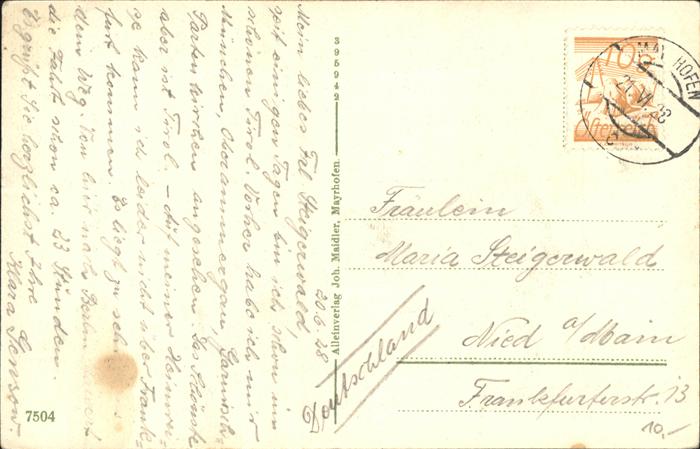 Mein liebes Frl. Steigerwald,
seit einigen Tagen bin ich schon im
schönen Tirol. Vorher habe ich mir
München, Oberammergau, Garmisch-
Partenkirchen angesehen. Das Schönste
aber ist Tirol. – Auf meiner Heimrei-
se kann ich leider nicht über Frank-
furt kommen. Es liegt zu sehr
dem Weg. Von hier nach Berlin dauert
die Fahrt schon ca. 23 Stunden.
Es grüßt Sie herzlichst Ihre
Klara
7504
39594 2
Alleinverlag Joh. Maidler, Mayrhofen
20.6.28
Deutschland
10 G
Österreich
MAYRHOFEN
21.VI.28
Fräulein
Maria Steigerwald
Nied a/Main
Frankfurterstr. 13
10,-